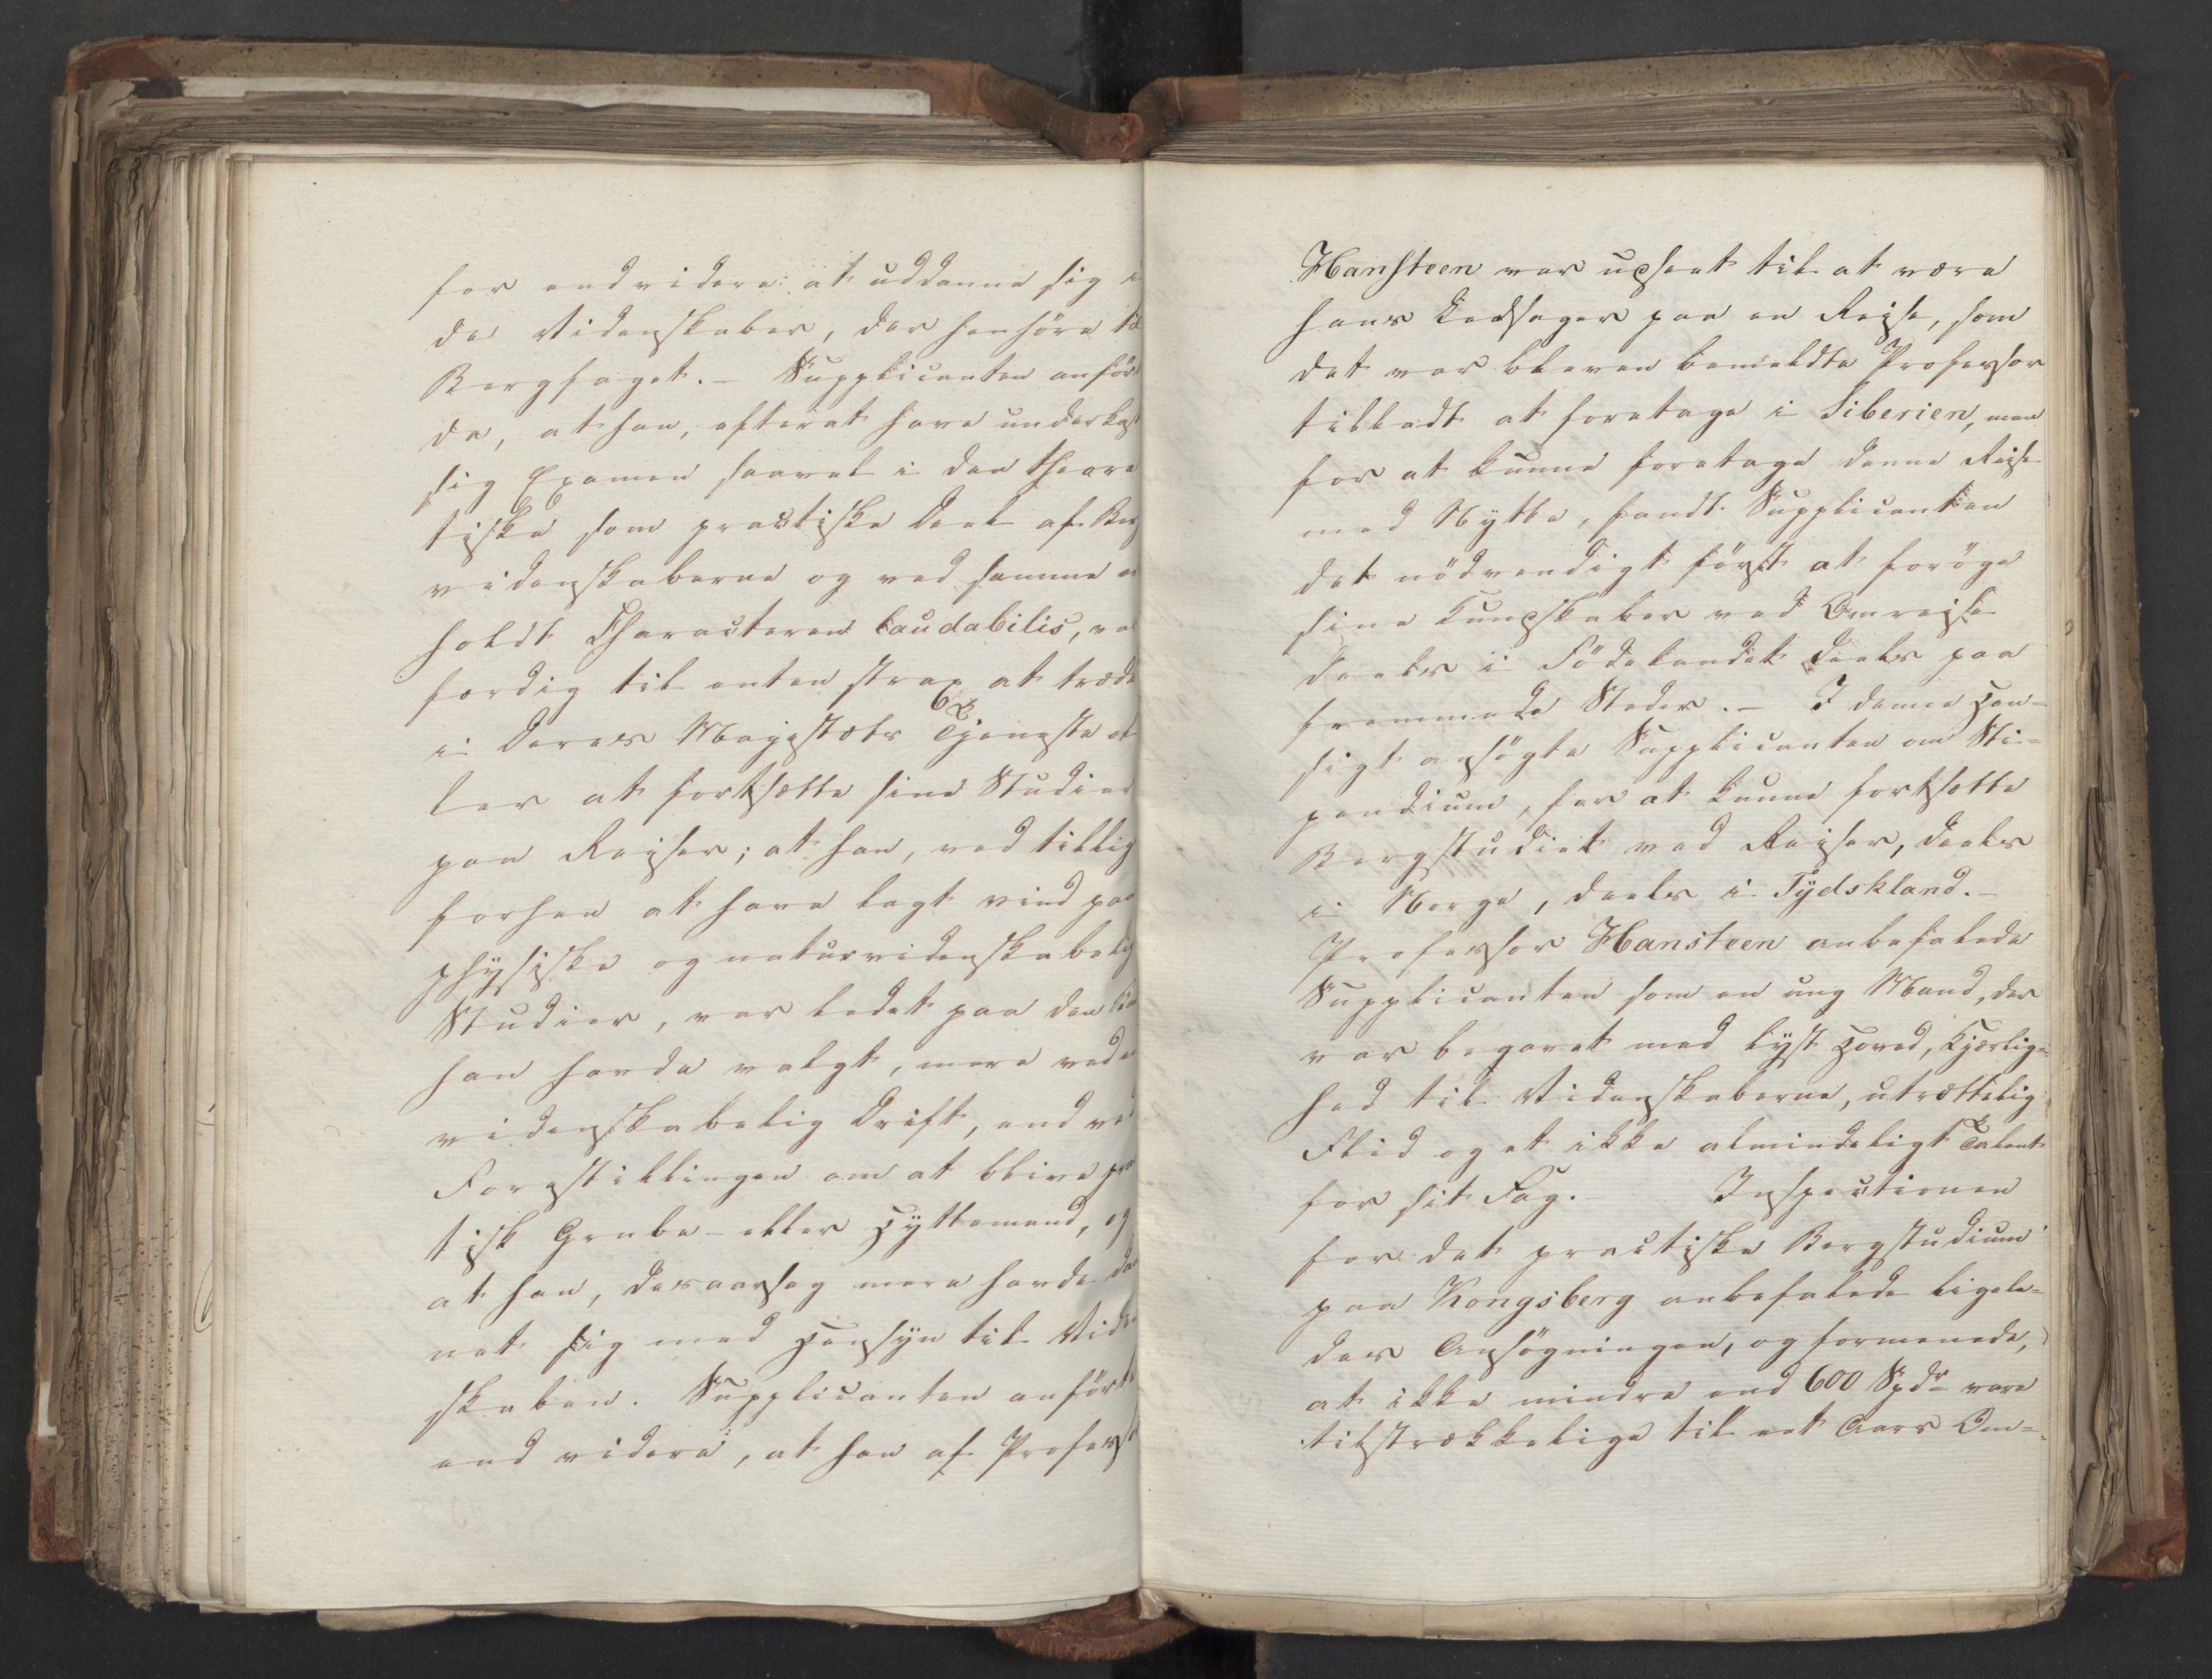 for endvidere at uddanne sig i
de Videnskaber, der henhøre til
Bergfaget. – Supplicanten anför¬
de, at han, efterat have underkast
sig Examen saavel i den theore
tiske som practiske Deel af Berg
videnskaberne og ved samme er
holdt Characteren Laudabilis, var
færdig til enten strax at træde
i Deres Majestæts Tjeneste el
ler at fortsætte sine Studier
paa Reiser; at han, ved tillig
forhen at have lagt vind paa
physiske og naturvidenskabelig
Studier, var ledet paa den
han havde valgt, mere ved
videnskabelig Drift, end ved
Forestillingen om at blive prac
tisk Grube- eller Hyttemand, og
at han, desaarsag mere havde dan
net sig med Hensyn til Viden
skaben. Supplicanten anförte
end videre, at han af Professor
Hansteen var udseet til at være
hans Ledsager paa en Reise, som
det var bleven bemeldte Professor
tilladt at foretage i Siberien, men
for at kunne foretage denne Reise
med Nytte, fandt Supplicanten
det nödvendigt först at foröge
sine Kundskaber ved Omreise
deels i Födelandet deels paa
fremmede Steder. – I denne Hen-
sigt ansögte Supplicanten om Sti=
pendium, for at kunne fortsætte
Bergstudiet ved Reiser, deels
i Norge, deels i Tydskland. –
Professor Hansteen anbefalede
Supplicanten som en ung Mand, der
var begavet med lyst Hoved, Kjærlig=
hed til Videnskaberne, utrættelig
Flid og et ikke almindeligt Talent
for sit Fag. – Inspectionen
for det practiske Bergstudium
paa Kongsberg anbefalede ligele=
des Ansögningen, og formenede,
at ikke mindre end 600 Spdr vare
tilstrækkelige til eet Aars Om=